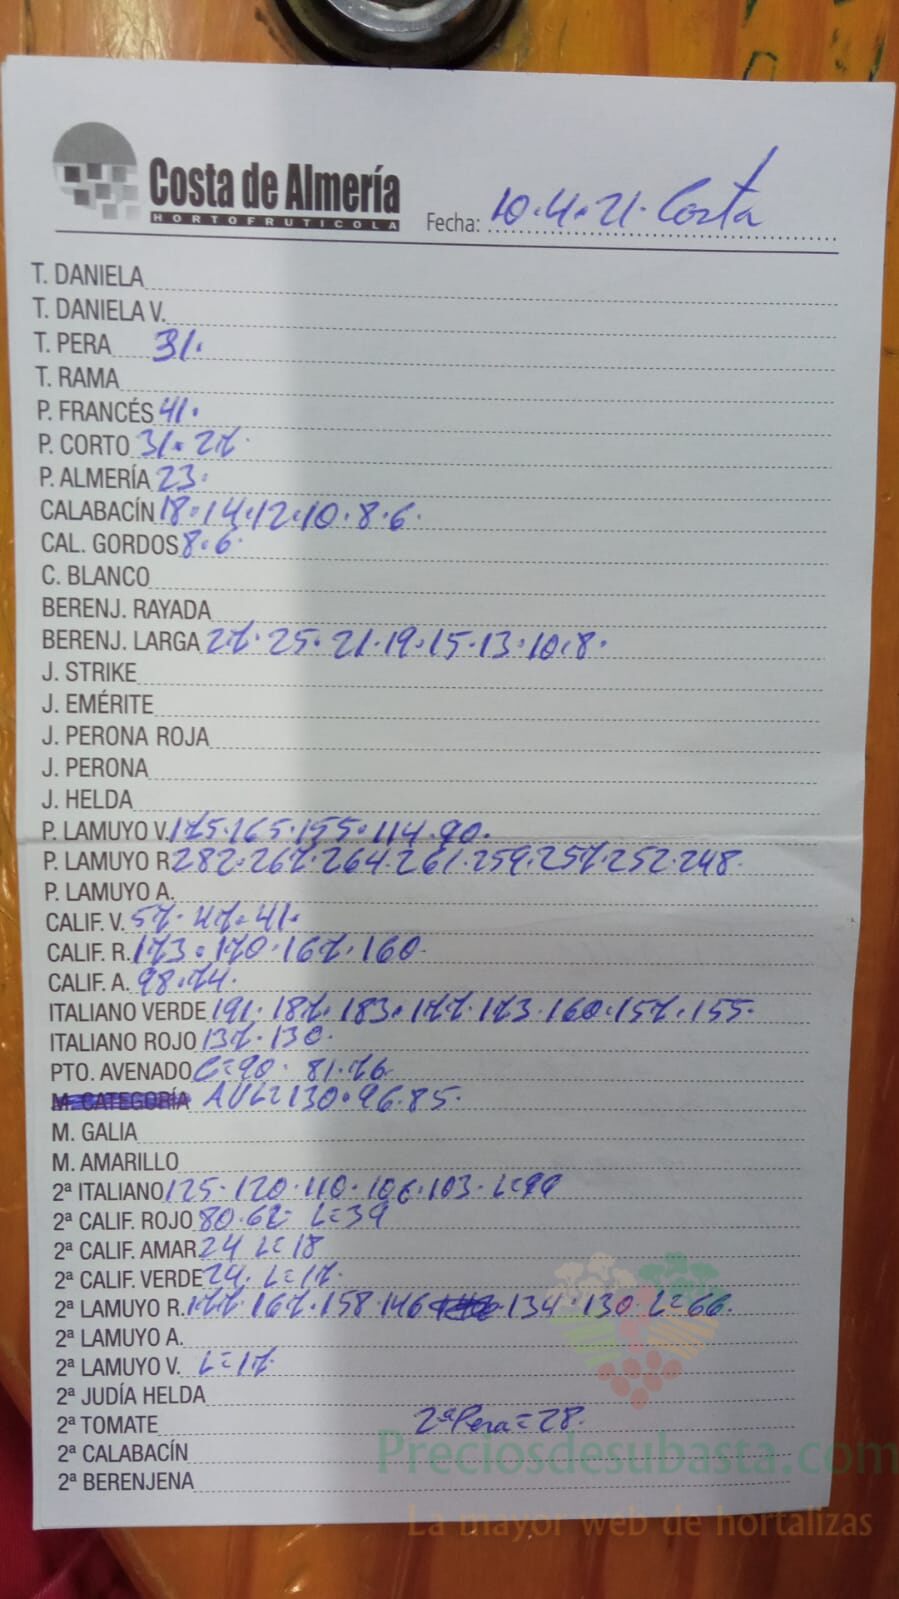 Costa de Almería
HORTOFRUTICOLA
Fecha: 10.4.21. Costa
T. DANIELA
T. DANIELA V.
T. PERA 31.
T. RAMA
P. FRANCÉS 41.
P. CORTO 31. 27.
P. ALMERÍA 23.
CALABACÍN 18.14.12.10.8.6.
CAL. GORDOS 8.6.
C. BLANCO
BERENJ. RAYADA
BERENJ. LARGA 27.25.21.19.15.13.10.8.
J. STRIKE
J. EMÉRITE
J. PERONA ROJA
J. PERONA
J. HELDA
P. LAMUYO V. 175.165.155.114.90.
P. LAMUYO R 282.267.264.261.259.257.252.248.
P. LAMUYO A.
CALIF. V. 57.47.41.
CALIF. R. 173.170.167.160.
CALIF. A. 98.74.
ITALIANO VERDE 191.187.183.177.173.160.157.155.
ITALIANO ROJO 137.130.
PTO. AVENADO C=90. 81.76.
M. CATEGORÍA AVL=130.96.85.
M. GALIA
M. AMARILLO
2ª ITALIANO 125.120.110.106.103. L=99
2ª CALIF. ROJO 80.62= L=39
2ª CALIF. AMAR 24 L=18
2ª CALIF. VERDE 24. L=17.
2ª LAMUYO R. 177.167.158.146 134.130. L=66.
2ª LAMUYO A.
2ª LAMUYO V. L=17.
2ª JUDÍA HELDA
2ª TOMATE 2ªPera=28.
2ª CALABACÍN
2ª BERENJENA
Preciosdesubasta.com
La mayor web de hortalizas